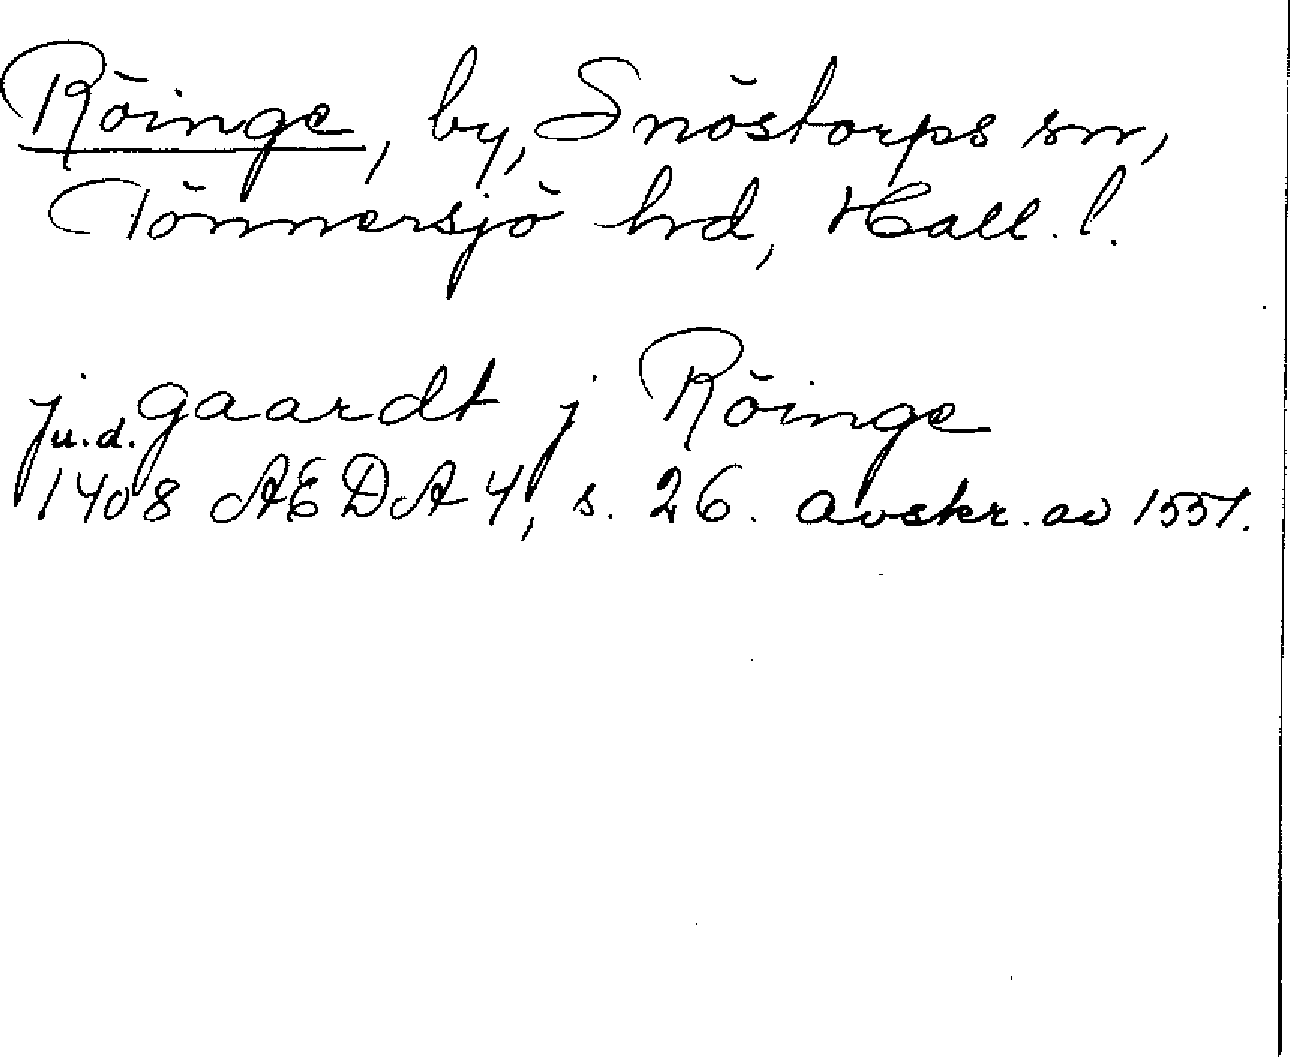 Röinge, by, Snöstorps sn,
Tönnersjö hrd, Hall. l.
j gaardt j Röinge
u.d.
1408 AEDA 4, s. 26. avskr. av 1551.